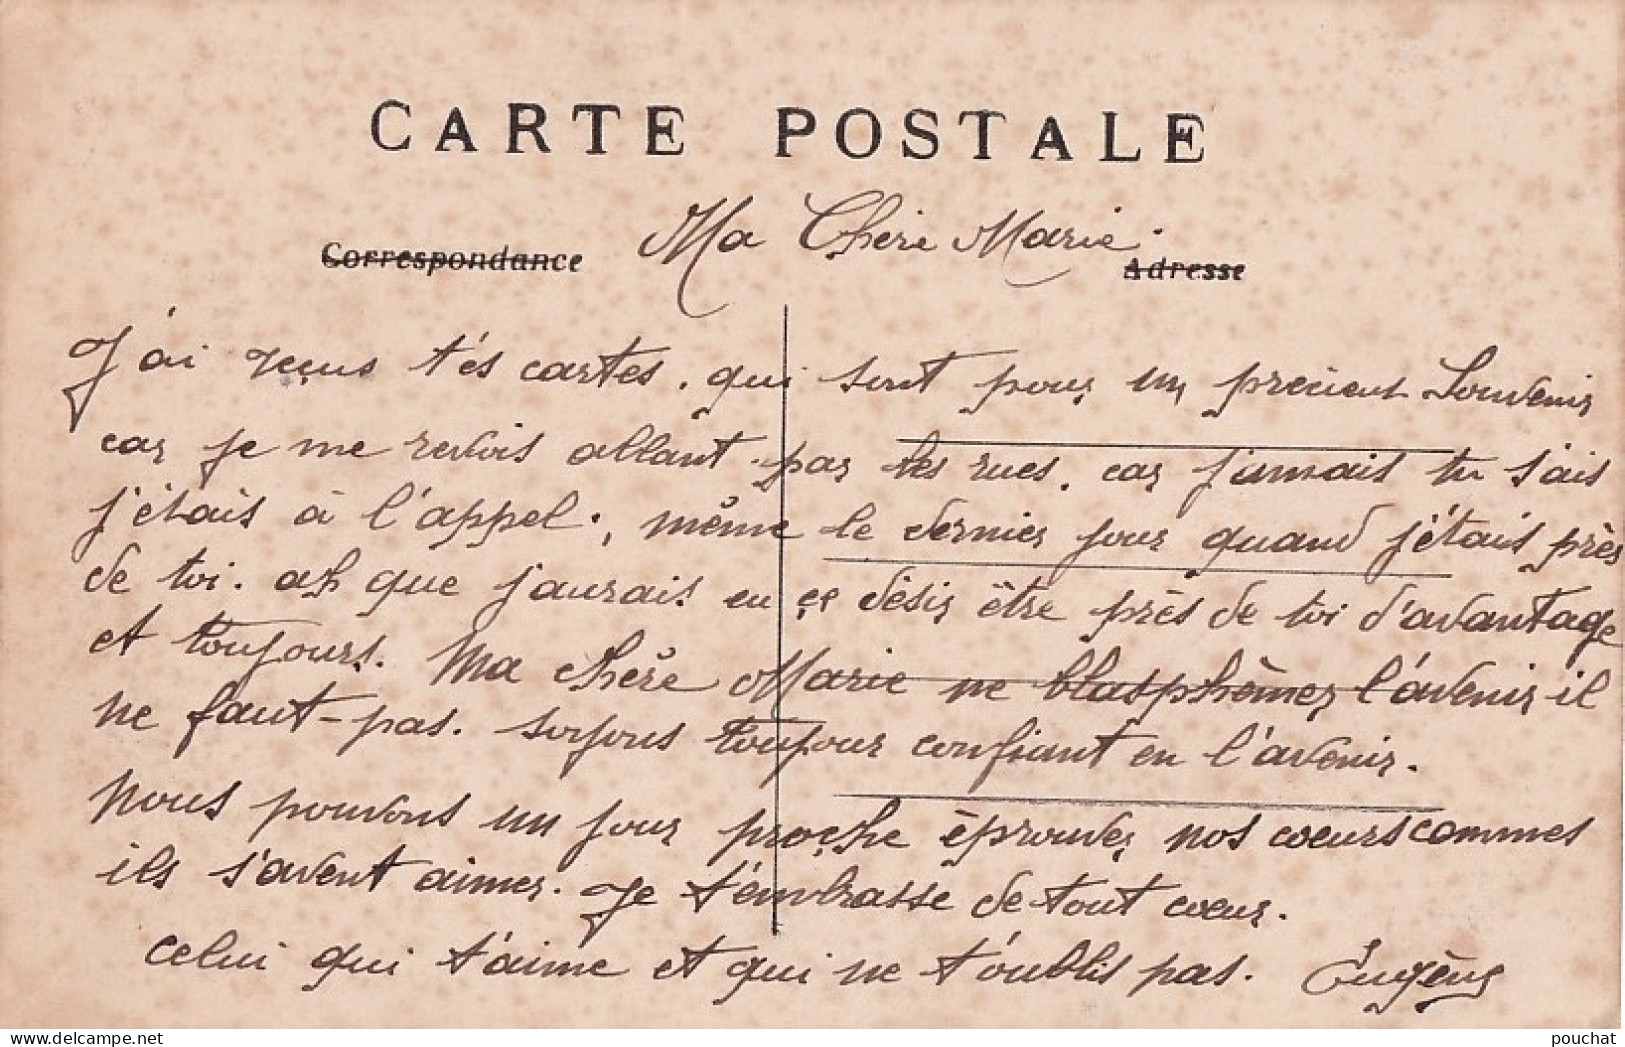 CARTE POSTALE
Ma Chére Marie.
Correspondance Adresse
J'ai reçus t'és cartes. qui sont pour un precieux Souvenir
car je me revois allant par les rues. car jamais tu s'ais
j'étais à l'appel., même le dernier jour quand j'étais près
de toi. ah que j'aurais eu ce désir être près de toi d'avantage
et toujours. Ma chère Marie ne blasphèmer l'avenir il
ne faut-pas. soyons toujour confiant en l'avenir.
nous pouvons un jour proche éprouver nos coeurs commes
ils s'avent aimer. Je t'embrasse de tout coeur.
celui qui t'aime et qui ne t'oublis pas. Eugène
pouchat